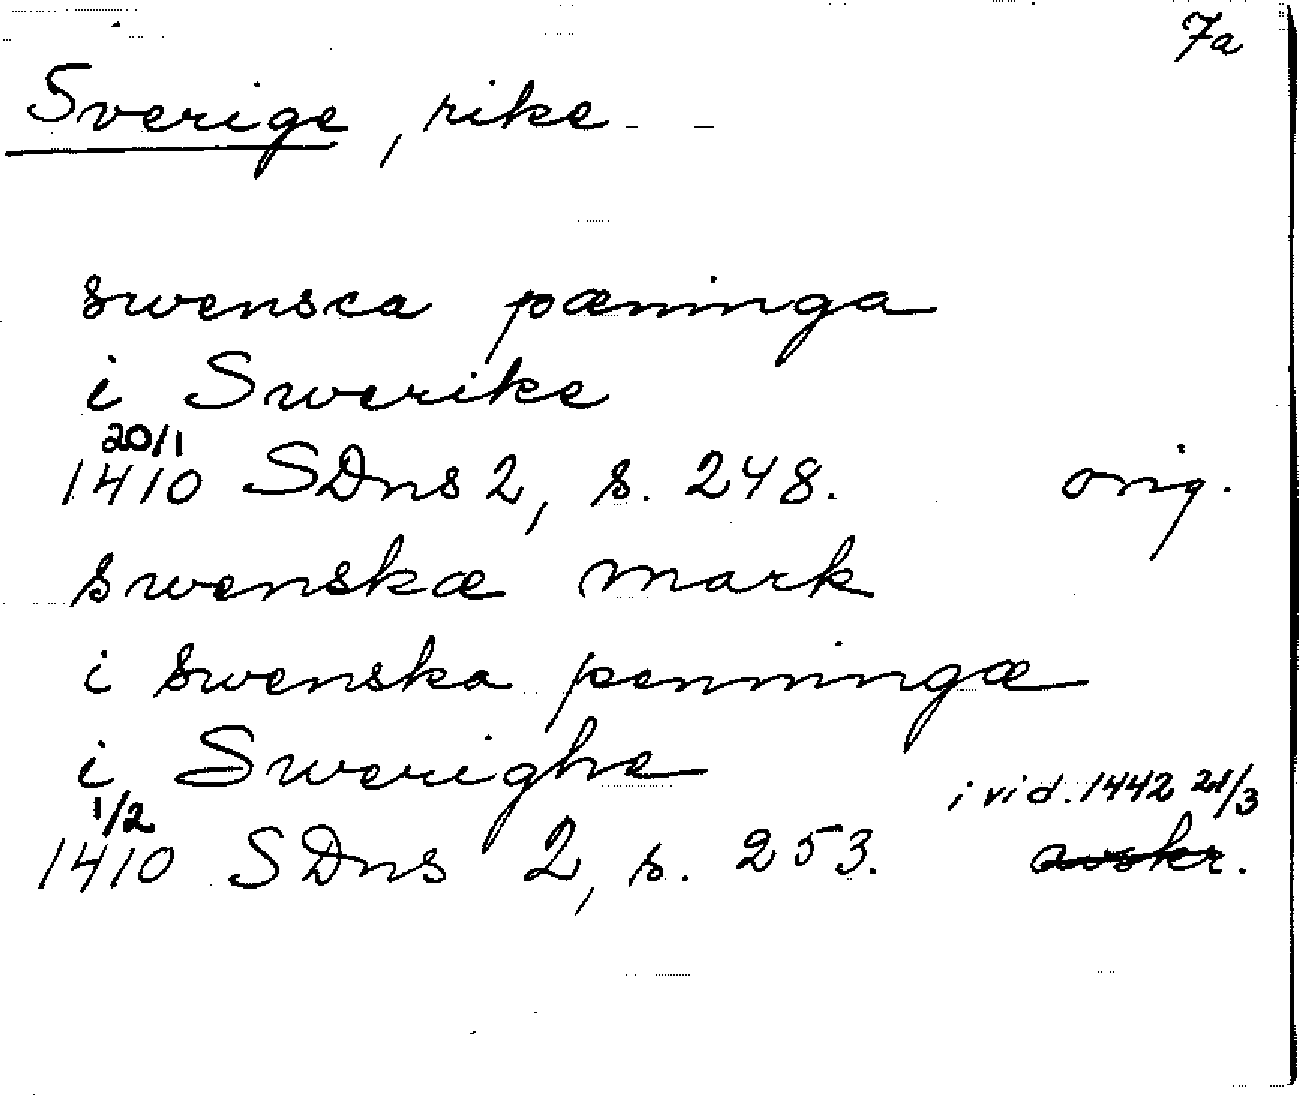 7a
Sverige, rike
swensca pæninga
i Swerike
20/1
1410 SDns 2, s. 248. orig.
swenskæ mark
i swenska penningæ
i Swerighe
i vid. 1442 21/3
1/2
1410 SDns 2, s. 253. avskr.